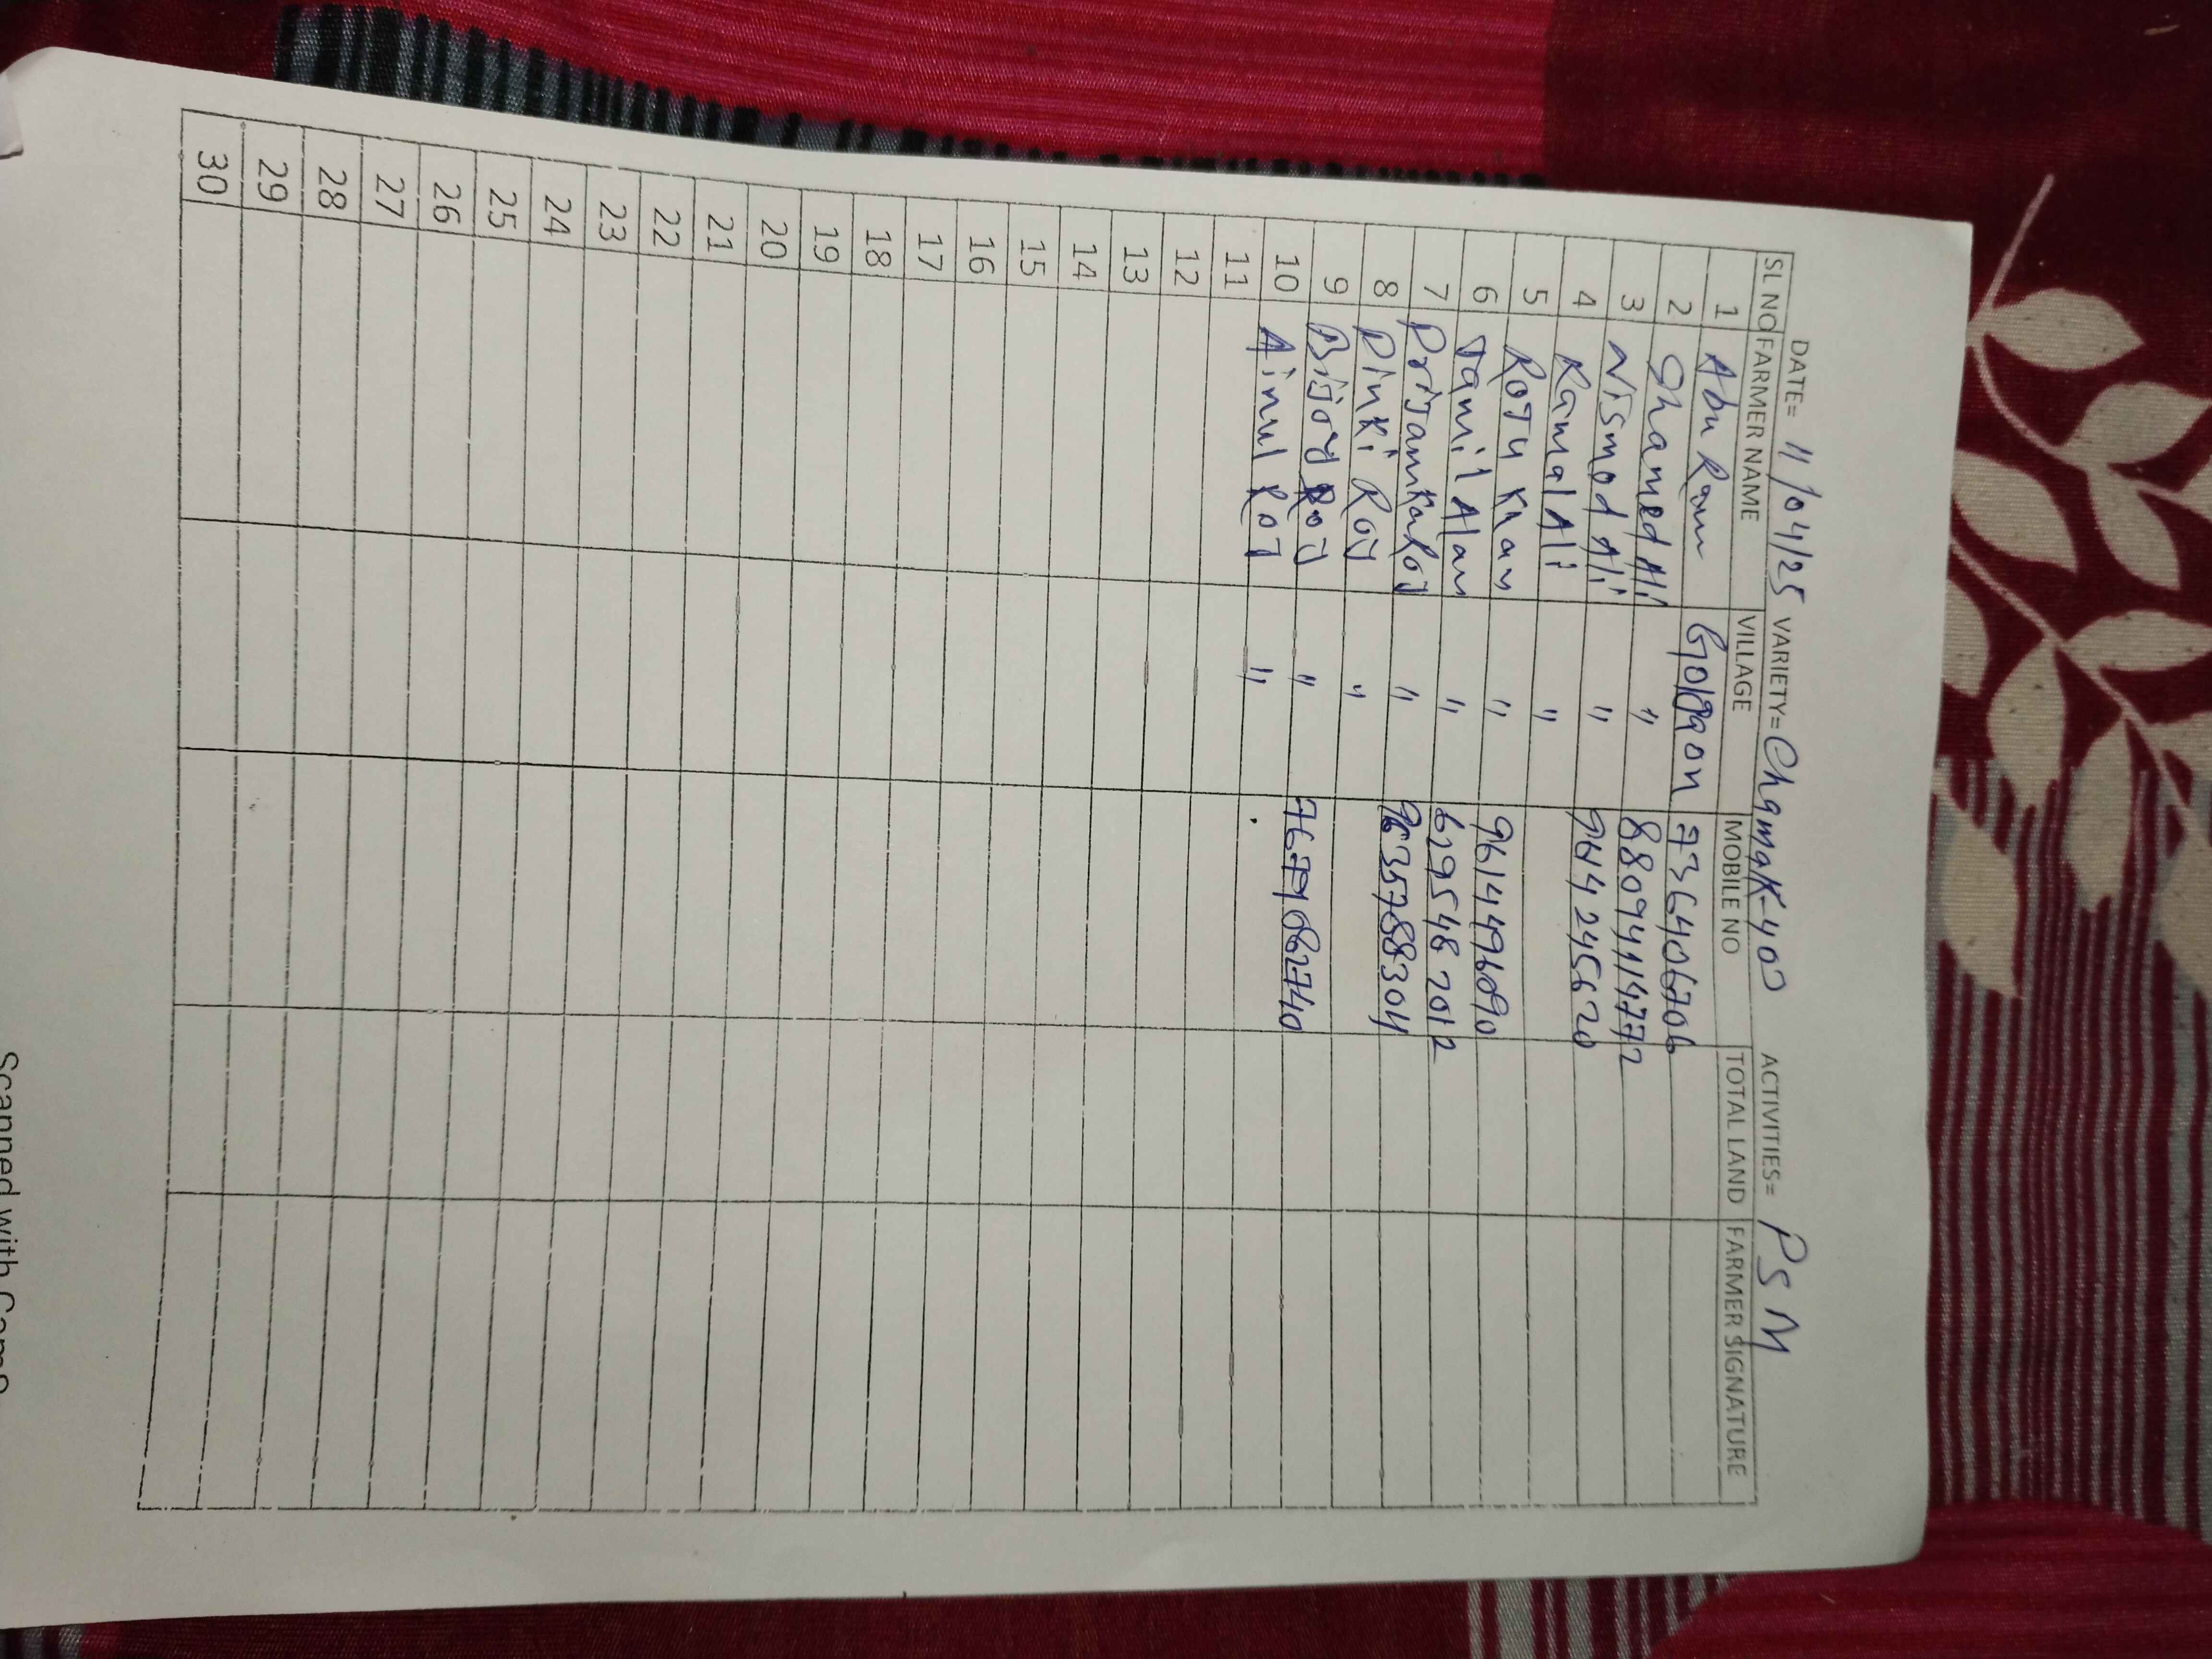 DATE= 11/04/25 VARIETY= Chamak-400 ACTIVITIES= PSM
SL NO FARMER NAME VILLAGE MOBILE NO TOTAL LAND FARMER SIGNATURE
1 Abu Ram Golgaon 7364406706
2 Shamed Ali " 8809441477 2
3 Nismod Ali " 9614245620
4 Kamal Ali "
5 Roju Khan " 9614496090
6 Jamil Alam " 6295482012
7 " 9635788304
8 Pinki Roy "
9 Bijoy Roy " 7679082740
10 Ainul Roy "
11
12
13
14
15
16
17
18
19
20
21
22
23
24
25
26
27
28
29
30
Scanned with